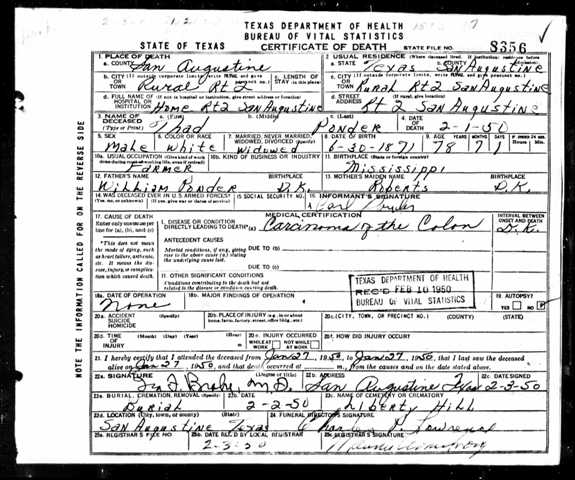 TEXAS DEPARTMENT OF HEALTH
BUREAU OF VITAL STATISTICS
STATE OF TEXAS CERTIFICATE OF DEATH STATE FILE NO. 8356
1. PLACE OF DEATH 2. USUAL RESIDENCE
a. COUNTY San Augustine a. STATE Texas b. COUNTY San Augustine
b. CITY OR TOWN Rural Rt 2 c. LENGTH OF STAY c. CITY OR TOWN Rural Rt. 2 San Augustine
d. FULL NAME OF HOSPITAL OR INSTITUTION Home Rt 2 San Augustine d. STREET ADDRESS Rt 2 San Augustine
3. NAME OF DECEASED (Type or Print) a. (First) Thad b. (Middle) c. (Last) Ponder 4. DATE OF DEATH 2-1-50
5. SEX Male 6. COLOR OR RACE White 7. MARRIED, NEVER MARRIED, WIDOWED, DIVORCED (Specify) Widowed 8. DATE OF BIRTH 6-30-1871 9. AGE YEARS 78 MONTHS 7 DAYS 1
10a. USUAL OCCUPATION Farmer 10b. KIND OF BUSINESS OR INDUSTRY 11. BIRTHPLACE Mississippi
12. FATHER'S NAME William Ponder BIRTHPLACE D.K. 13. MOTHER'S MAIDEN NAME Roberts BIRTHPLACE D.K.
14. WAS DECEASED EVER IN U.S. ARMED FORCES? 15. SOCIAL SECURITY NO. 16. INFORMANT'S SIGNATURE
MEDICAL CERTIFICATION
17. CAUSE OF DEATH
Enter only one cause per line for (a), (b), and (c)
I. DISEASE OR CONDITION DIRECTLY LEADING TO DEATH (a) Carcinoma of the Colon INTERVAL BETWEEN ONSET AND DEATH D.K.
*This does not mean the mode of dying, such as heart failure, asthenia, etc. It means the disease, injury, or complication which caused death.
ANTECEDENT CAUSES
Morbid conditions, if any, giving rise to the above cause (a) stating the underlying cause last.
DUE TO (b)
DUE TO (c)
II. OTHER SIGNIFICANT CONDITIONS
Conditions contributing to the death but not related to the disease or condition causing death.
TEXAS DEPARTMENT OF HEALTH
REC'D FEB 10 1950
BUREAU OF VITAL STATISTICS
18a. DATE OF OPERATION None 18b. MAJOR FINDINGS OF OPERATION 19. AUTOPSY YES NO
20a. ACCIDENT SUICIDE HOMICIDE 20b. PLACE OF INJURY 20c. (CITY, TOWN, OR PRECINCT NO.) (COUNTY) (STATE)
20d. TIME OF INJURY (Month) (Day) (Year) (Hour) 20e. INJURY OCCURRED WHILE AT WORK NOT WHILE AT WORK 20f. HOW DID INJURY OCCUR?
21. I hereby certify that I attended the deceased from Jan 27, 1950, to Jan 27, 1950, that I last saw the deceased
alive on Jan 27, 1950, and that death occurred at m., from the causes and on the date stated above.
22a. SIGNATURE M.D. (Degree or title) 22b. ADDRESS San Augustine Texas 22c. DATE SIGNED 2-3-50
23a. BURIAL, CREMATION, REMOVAL (Specify) Burial 23b. DATE 2-2-50 23c. NAME OF CEMETERY OR CREMATORY Liberty Hill
23d. LOCATION (City, town, or county) (State) San Augustine Texas 24. FUNERAL DIRECTOR'S SIGNATURE
25a. REGISTRAR'S FILE NO. 25b. DATE REC'D BY LOCAL REGISTRAR 2-3-50 25c. REGISTRAR'S SIGNATURE
NOTE THE INFORMATION CALLED FOR ON THE REVERSE SIDE